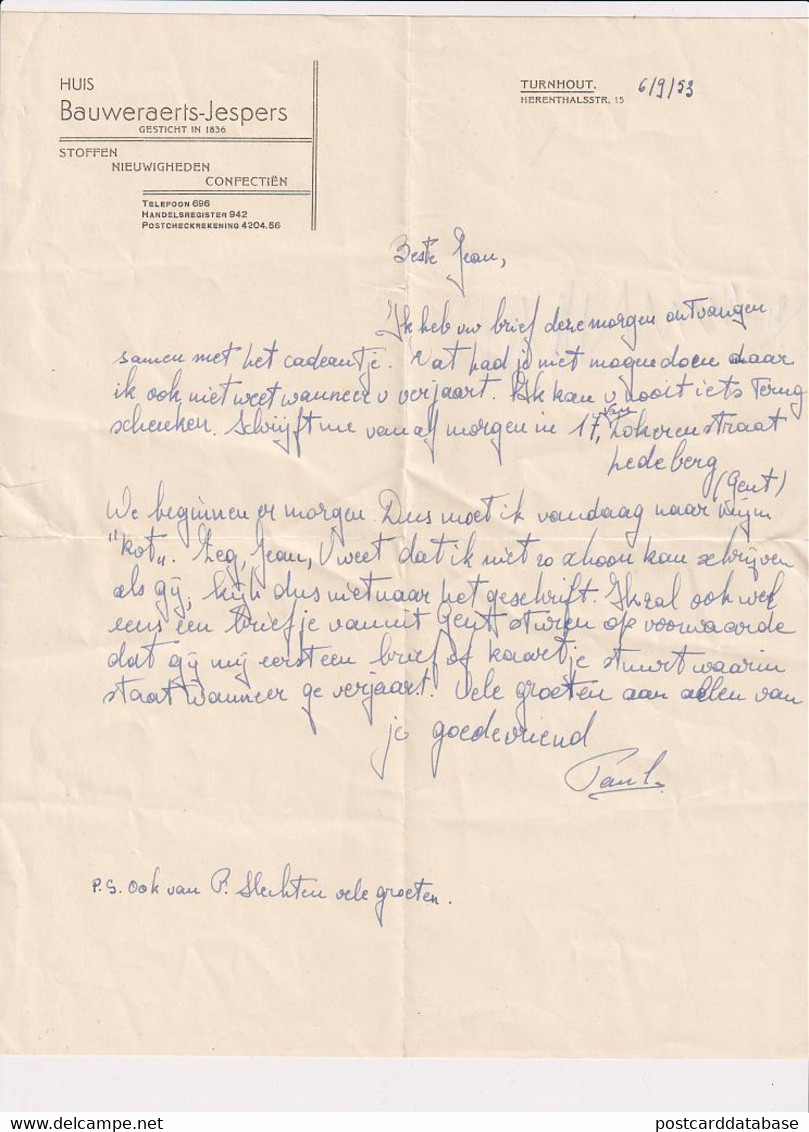 HUIS
Bauweraerts-Jespers
GESTICHT IN 1836
STOFFEN
NIEUWIGHEDEN
CONFECTIËN
TELEFOON 696
HANDELSREGISTER 942
POSTCHECKREKENING 4204.56
TURNHOUT, 6/9/53
HERENTHALSSTR. 15
Beste Jean,
Ik heb uw brief deze morgen ontvangen
samen met het cadeautje. Dat had je niet mogen doen daar
ik ook niet weet wanneer u verjaart. Ik kan u nooit iets terug
schenken. Schrijft me vanaf morgen in 17, Lokerenstraat
Ledeberg
(Gent)
We beginnen er morgen. Dus moet ik vandaag naar mijn
"kot". Zeg, Jean, U weet dat ik niet zo schoon kan schrijven
als gij, kijk dus niet naar het geschrift. Ik zal ook wel
eens een briefje vanuit Gent sturen op voorwaarde
dat gij mij eerst een brief of kaartje stuurt waarin
staat wanneer ge verjaart. Vele groeten aan allen van
je goede vriend
Paul.
P.S. Ook van P. Slechten vele groeten.
delcampe.net
postcarddatabase